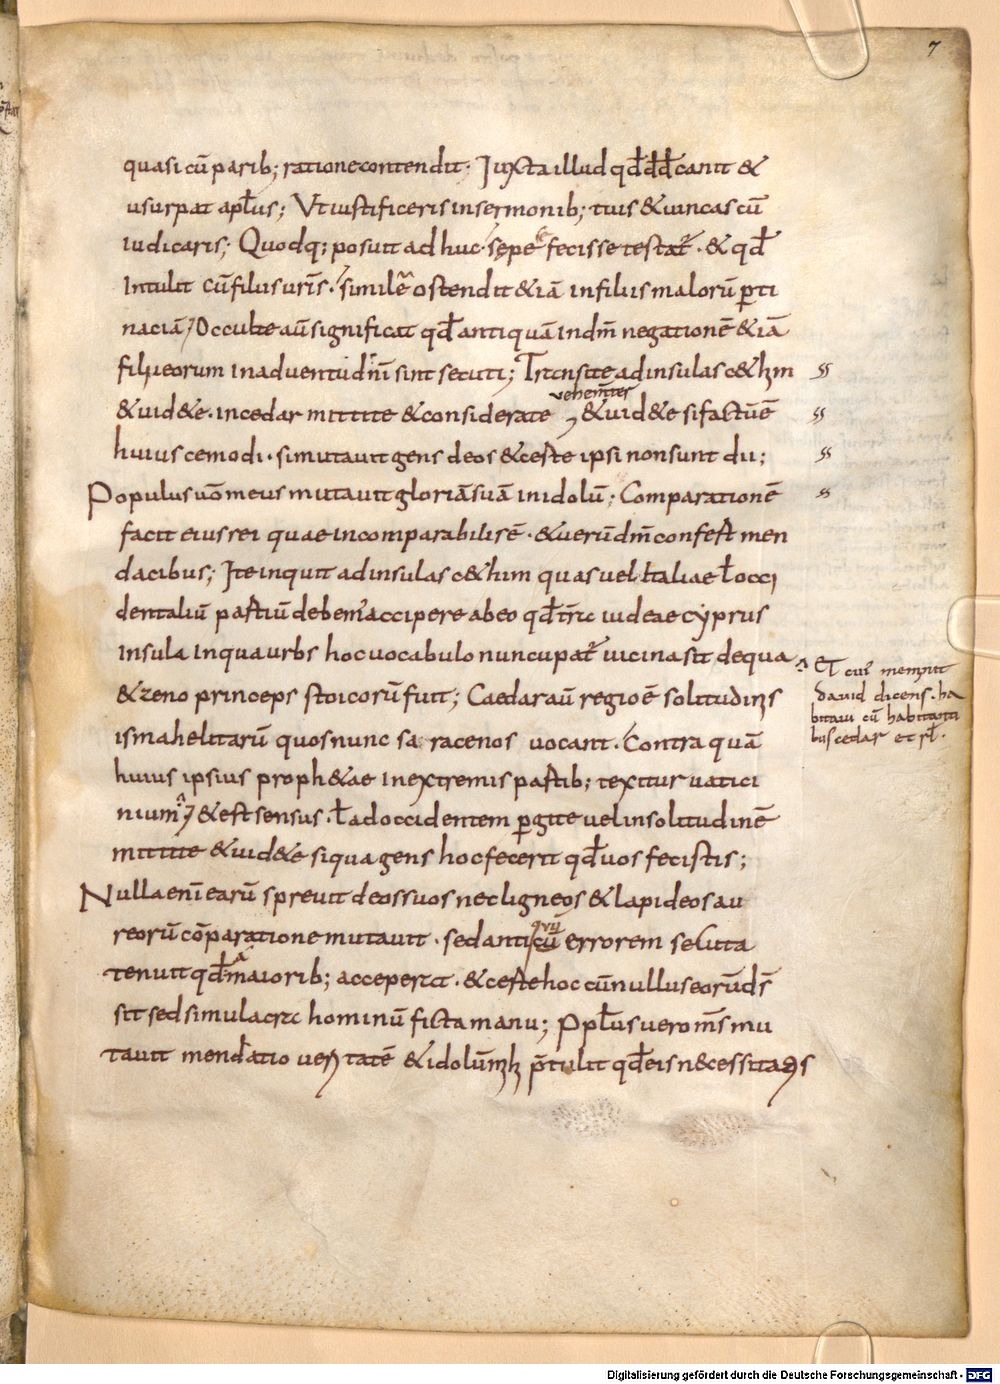 7
quasi cū parib; ratione contendit; Juxta illud qđ đđ canit &
usurpat apłus; Vt iustificeris in sermonib; tuis & uincas cū
iudicaris; Quodq; posuit ad huc · sepe se fecisse testat̄ · & qđ
Intulit cū filiis ur̄is · similē ostendit & iā in filiis malorū p̄ti
naciā; Occulte aū significat qđ antiquā in dn̄m negationē & iā
filii eorum in aduentu dn̄i sint secuti; Transite ad insulas c&him
uehem̄ter
& uid&e · in cedar mittite & considerate, & uid&e si factū ē
huius cemodi · si mutauit gens deos & certe ipsi non sunt dii;
Populus uō meus mutauit gloriā suā in idolū; Comparationē
facit eius rei quae incomparabilis ē · & uerū dm̄ confert men
dacibus; Ite inquit ad insulas c&him quas uel Italiae ł occi
dentaliū partiū debem' accipere ab eo qđ t̄rae iudeae cyprus
Insula In qua urbs hoc uocabulo nuncupat̄ uicina sit de qua
& zeno princeps stoicorū fuit; Caedar aū regio ē solitudinis
ismahelitarū quos nunc saracenos uocant · Contra quā
^ Et cui' meminit
dauid dicens · ha
bitaui cū habitanti
bus cedar et rł ·
huius ipsius proph&ae in extremis partib; texitur uatici
nium; & est sensus · ł ad occidentem p̄gite uel in solitudinē
mittite & uid&e si qua gens hoc fecerit qđ uos fecistis;
Nulla enī earū spreuit deos suos nec ligneos & lapideos au
reorū cōparatione mutauit · sed anticū errorem seluta
quū
tenuit qđ a maiorib; acceperat · & certe hoc cū nullus eorū ds̄
sit sed simulacra hominū ficta manu; Ppłus uero ms̄ mu
tauit mendatio ueritatē & idolū mihi p̄tulit qđ eis necessitatis
Digitalisierung gefördert durch die Deutsche Forschungsgemeinschaft - DFG